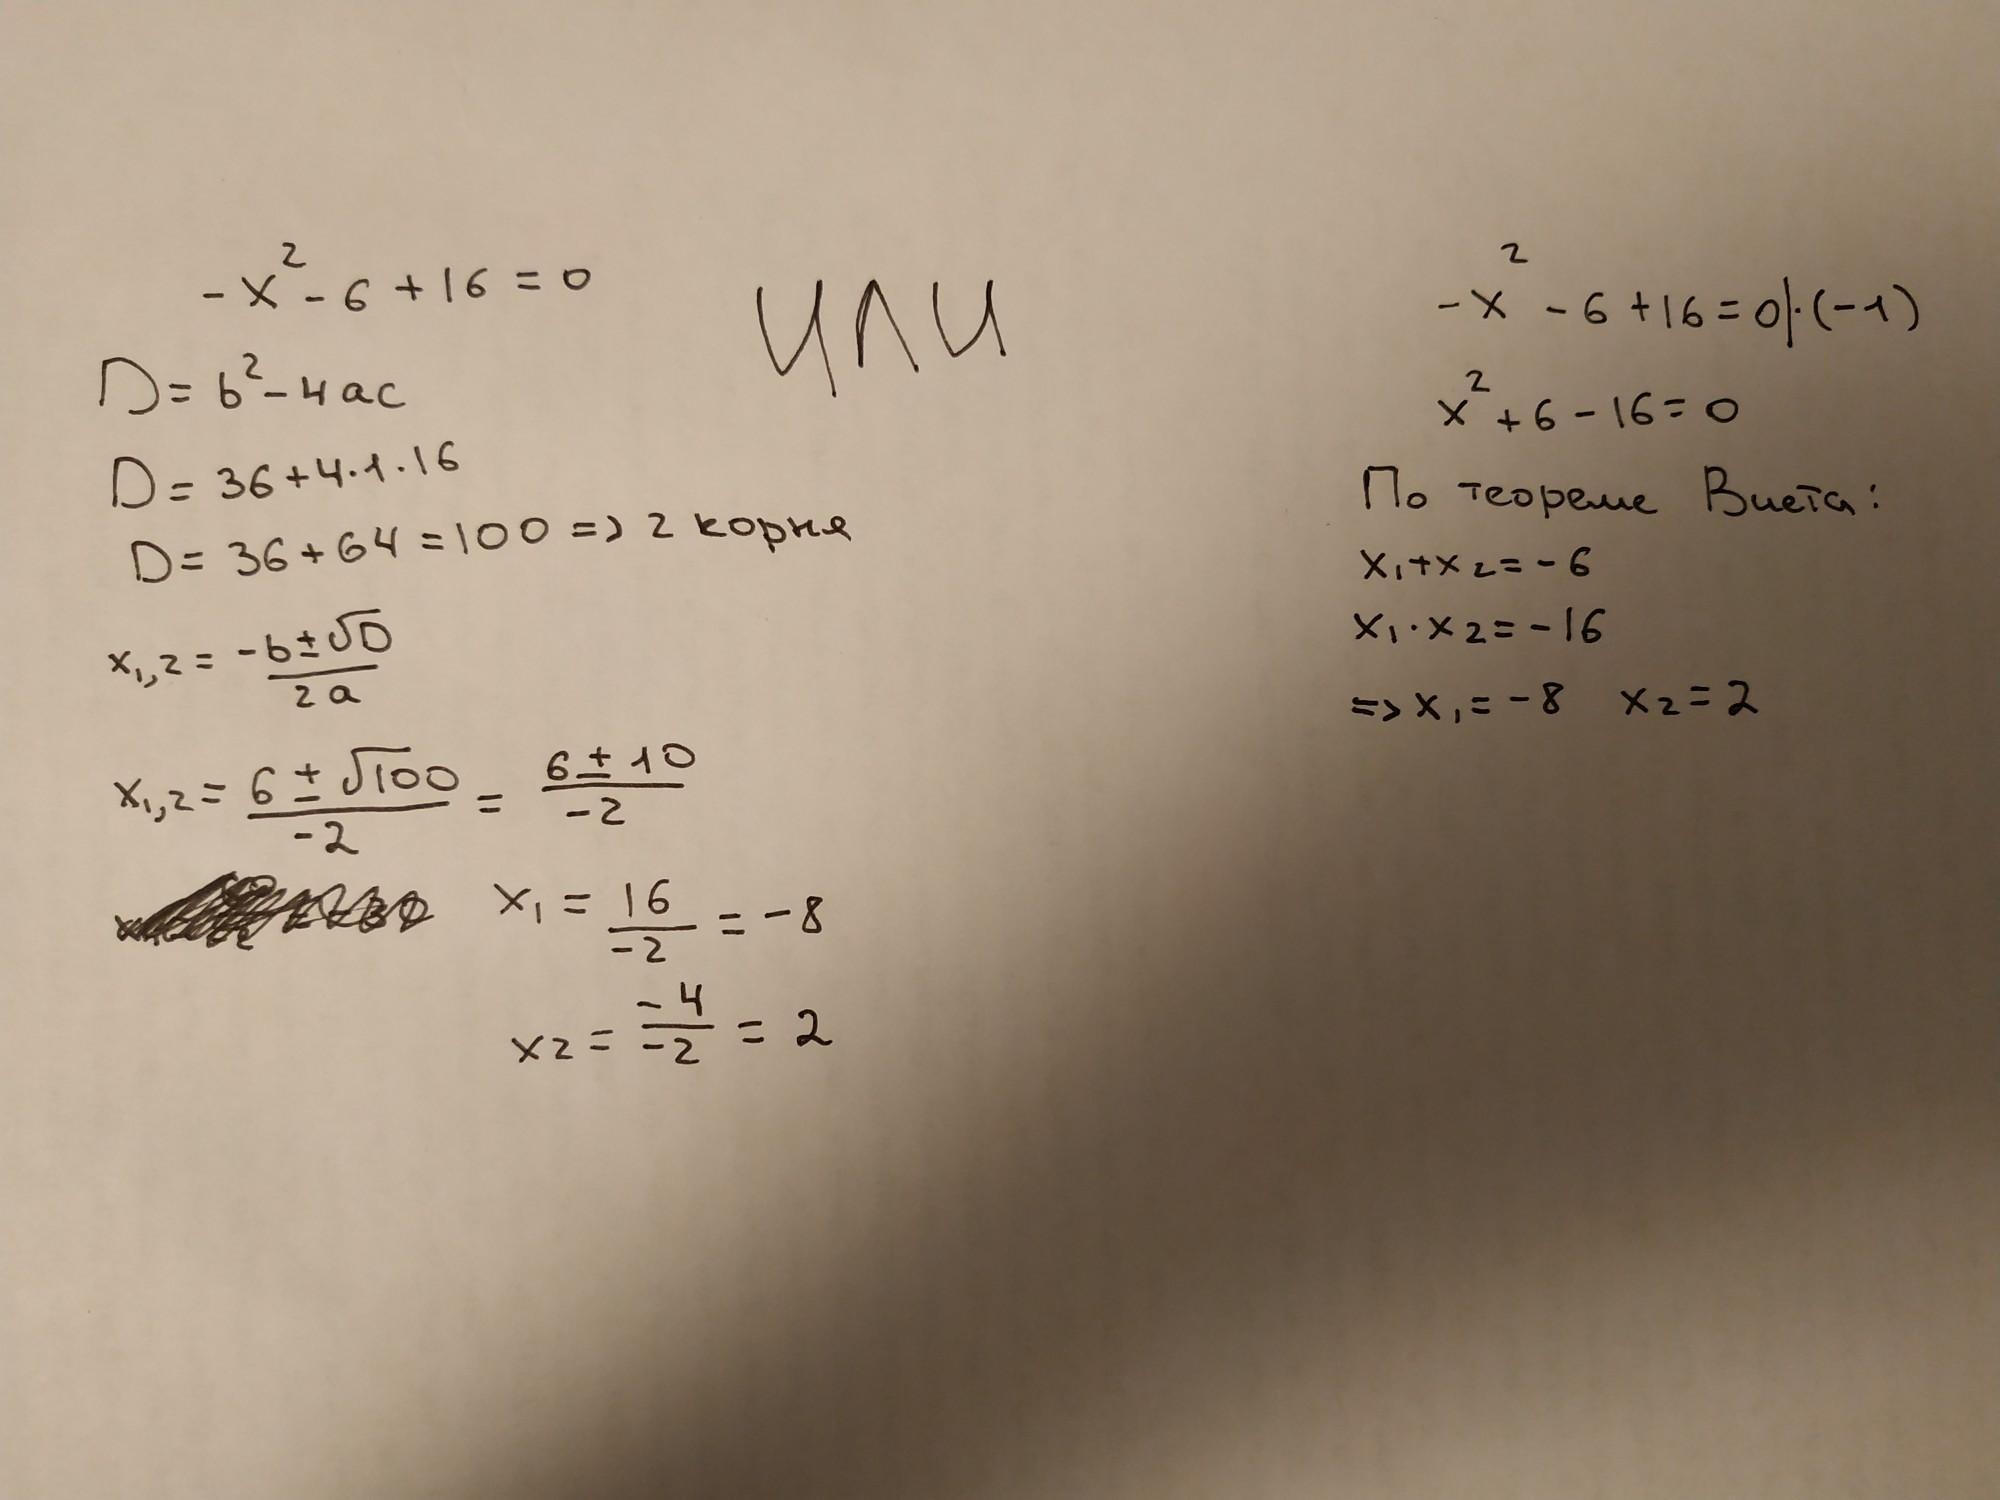 -x² - 6 + 16 = 0
D = b² - 4ac
D = 36 + 4·1·16
D = 36 + 64 = 100 => 2 корня
x₁,₂ = -b ± √D / 2a
x₁,₂ = 6 ± √100 / -2 = 6 ± 10 / -2
x₁ = 16 / -2 = -8
x₂ = -4 / -2 = 2
или
-x² - 6 + 16 = 0 |·(-1)
x² + 6 - 16 = 0
По теореме Виета:
x₁ + x₂ = -6
x₁ · x₂ = -16
=> x₁ = -8 x₂ = 2